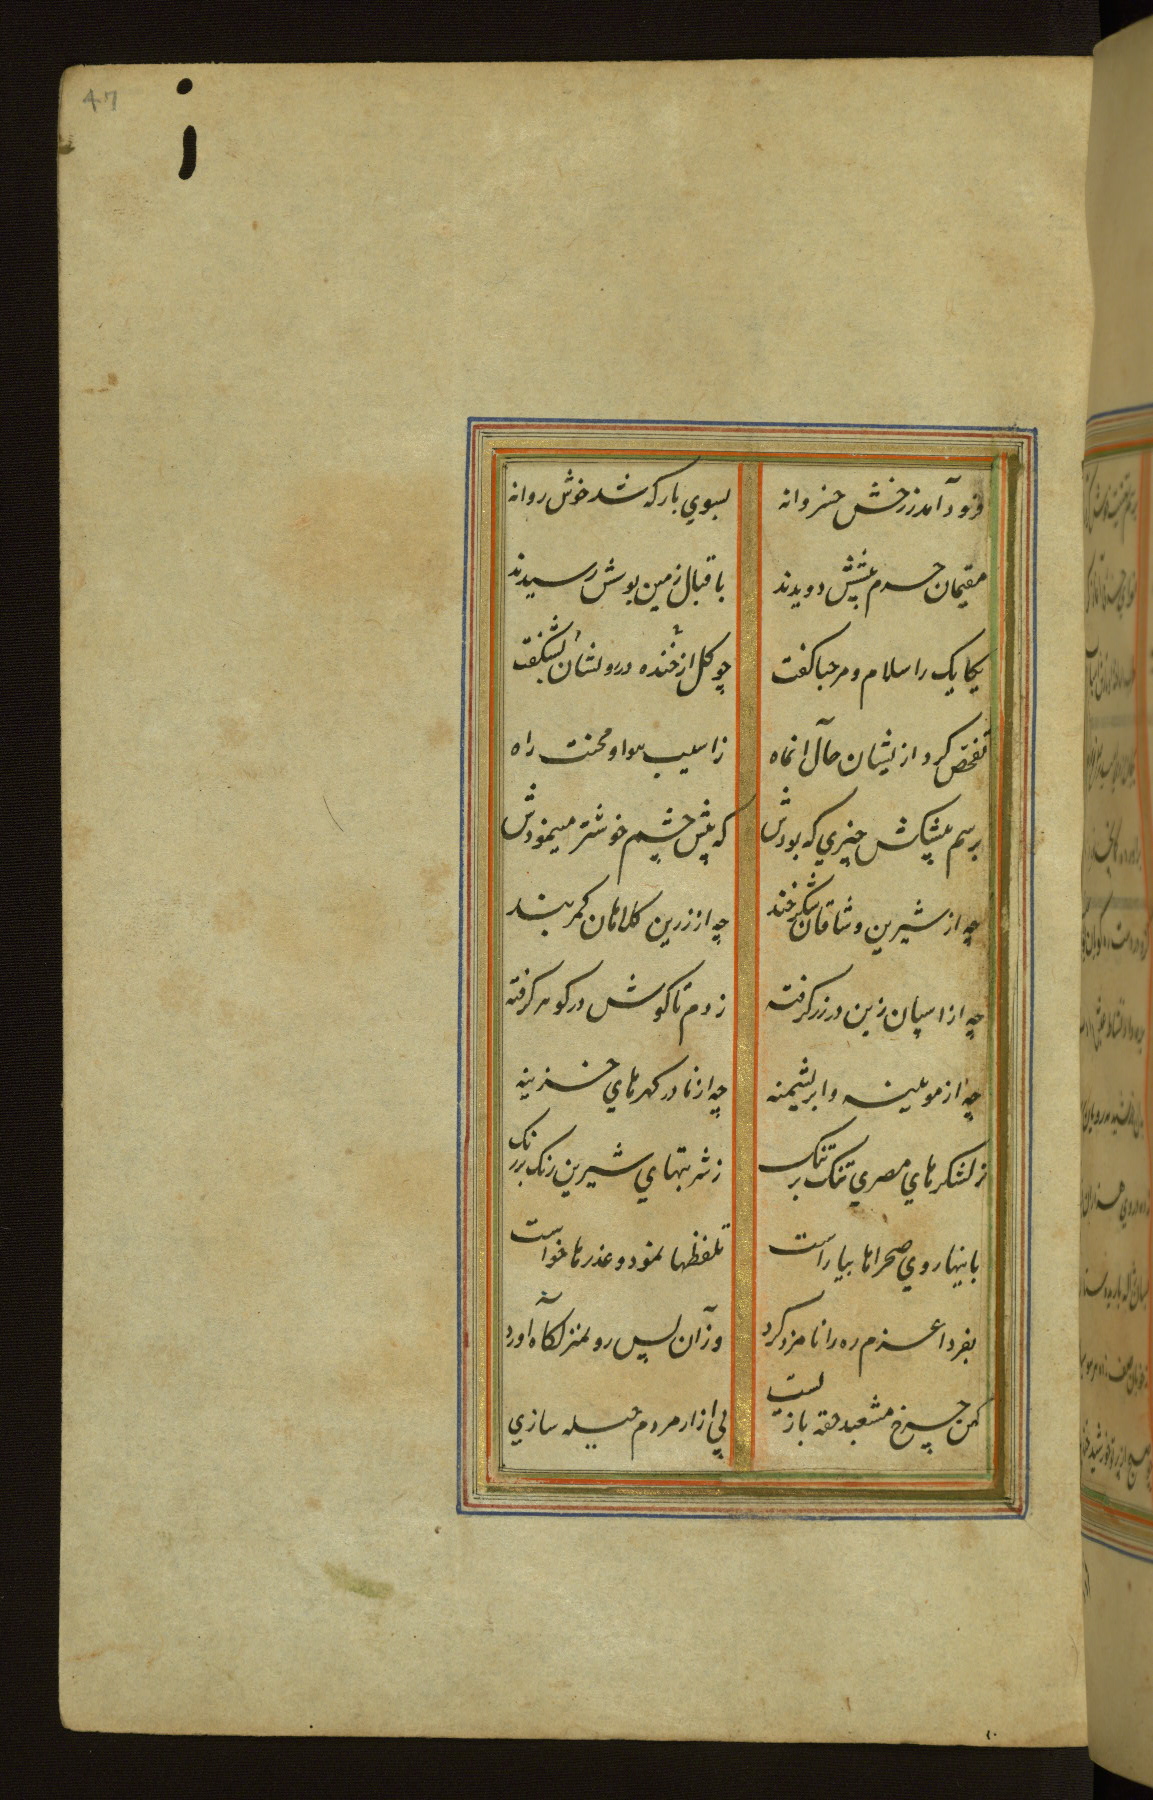 47
فرود آمد ز رخش خسروانه بسوي بارکه شد خوش روانه
مقیمان حرم پیشش دویدند باقبال زمین بوش رسیدند
یکایک را سلام و مرحبا کفت چو کل از خنده در روشان بشکفت
تفحص کرد ازیشان حال انماه ز اسیب هوا و محنت راه
برسم پیشکش چیزي که بودش که پیش چشم خوشتر مینمودش
چه از شیرین وشاقان شکر خند چه از زرین کلاهان کمر بند
چه از اسپان زین در زر کرفته ز دم تا کوش در کوهر کرفته
چه از موئینه و ابریشمینه چه از نادر کهرهاي خزینه
ز شکرهاي مصري تنک بر تنک ز شربتهاي شیرین رنک بر رنک
باینها روي صحراها بیاراست تلفظها نمود و عذرها خواست
بفردا عزم ره را نامزد کرد وز آن پس رو بمنزلکاه اورد
کهن چرخ مشعبد حقه بازیست پي ازار مردم حیله سازي